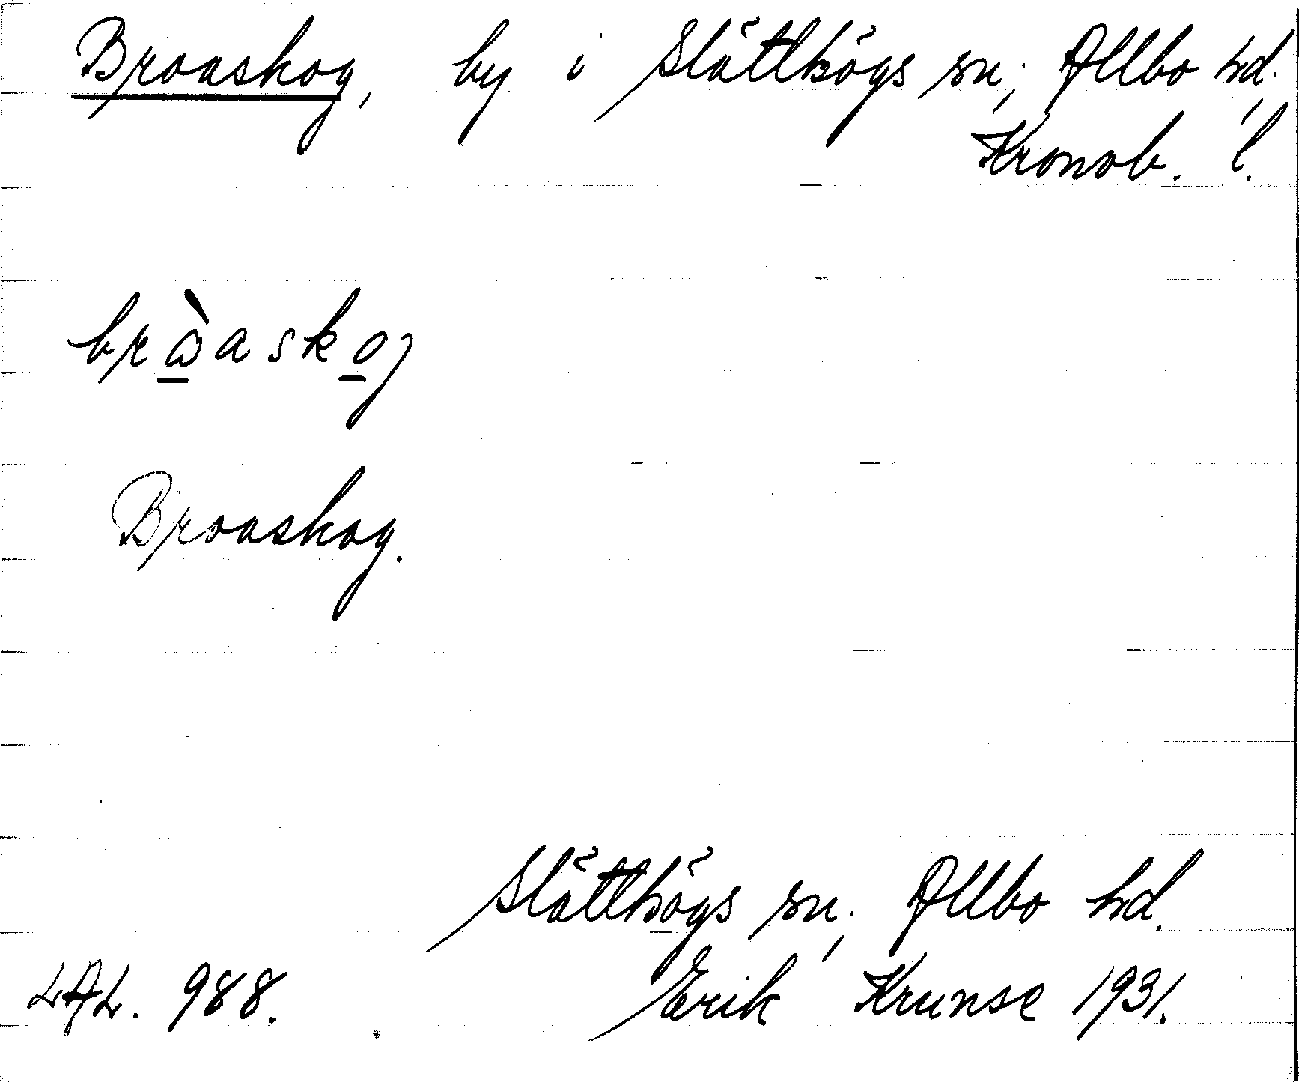 Broaskog, by i Slätthögs sn, Allbo hd,
Kronob. l.
Broaskog.
Slätthögs sn, Allbo hd.
LAL. 988. Erik Krunse 1931.